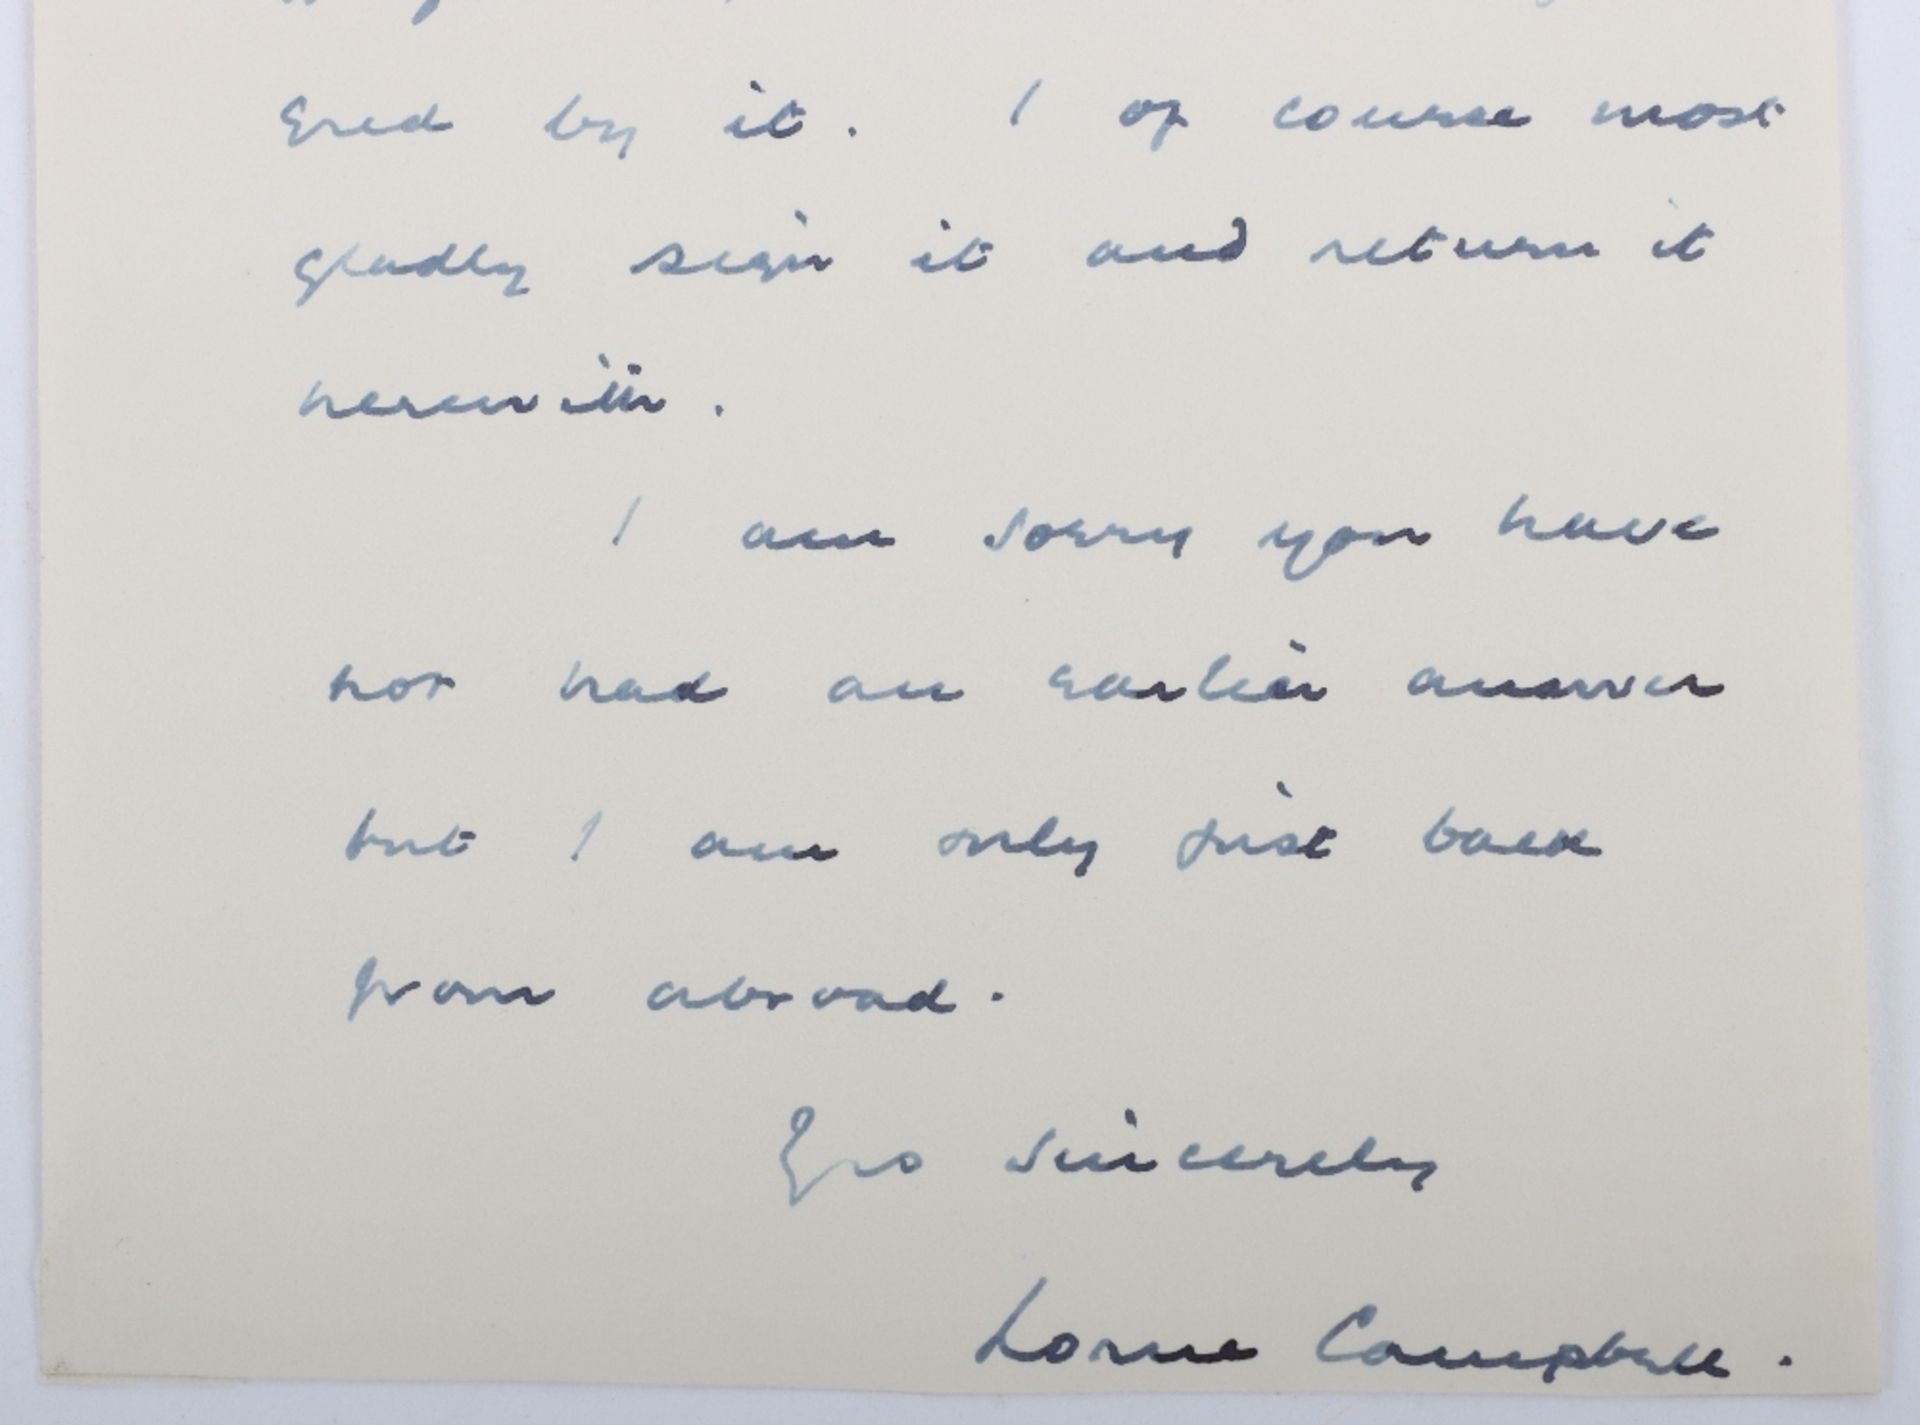 ered by it. I of course most
gladly sign it and return it
herewith.
I am sorry you have
not had an earlier answer
but I am only just back
from abroad.
Yrs sincerely
Lorne Campbell.